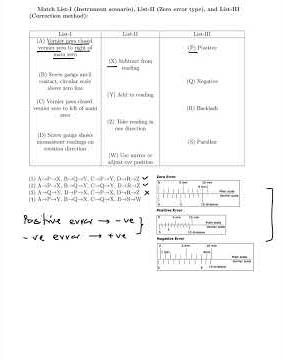 Match List-I (Instrument scenario), List-II (Zero error type), and List-III
(Correction method):
List-I List-II List-III
(A) Vernier jaws closed,
vernier zero to right of
main zero
(P) Positive
(X) Subtract from
reading
(B) Screw gauge until
contact, circular scale
above zero line
(Q) Negative
(Y) Add to reading
(C) Vernier jaws closed
vernier zero to left of main
zero
(R) Backlash
(Z) Take reading in
one direction
(D) Screw gauge shows
inconsistent readings on
rotation direction
(S) Parallax
(W) Use mirror or
adjust eye position
(1) A→P→X, B→Q→Y, C→P→Y, D→R→Z
(2) A→P→X, B→Q→Y, C→Q→Y, D→R→Z
(3) A→Q→Y, B→P→X, C→P→X, D→R→Z
(4) A→P→Y, B→Q→X, C→Q→X, D→S→W
Zero Error
Positive error → -ve
Positive Error
-ve error → +ve
Negative Error